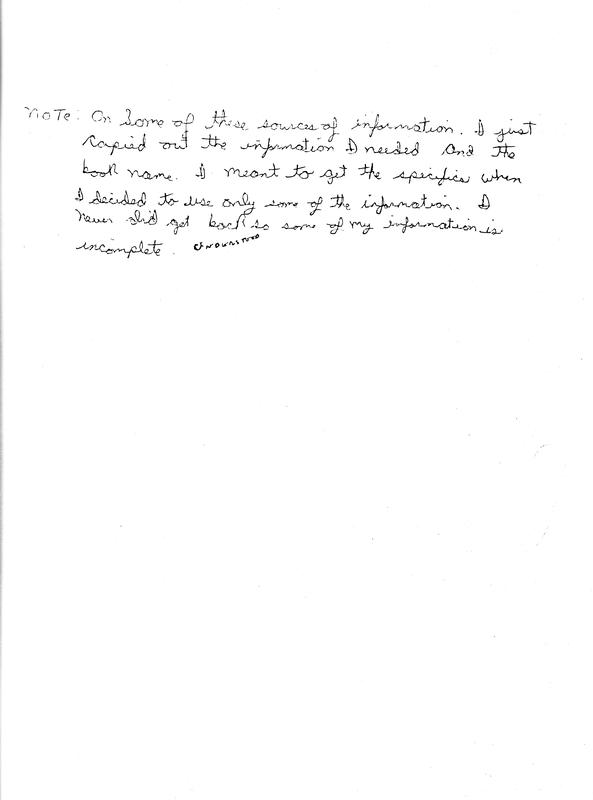 NOTE: On some of these sources of information. I just
copied out the information I needed and the
book name. I meant to get the specifics when
I decided to use only some of the information. I
never did get back so some of my information is
incomplete.